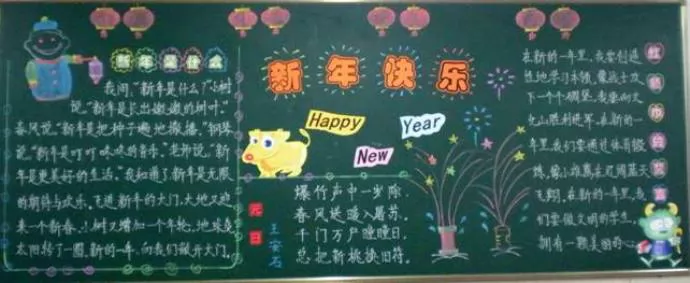 新年是什么
我问:“新年是什么?”小树
说:“新年是长出嫩嫩的树叶。”
春风说:“新年是把种子遍地撒播。”钢琴
说:“新年是叮叮咚咚的音乐。”老师说:“新
年是更美好的生活。”我知道了新年是无限
的期待与欢乐,飞进新年的大门,大地又迎
来一个新春,小树又增加一个年轮,地球在
太阳转了一圈,新的一年,向我们敞开大门。
新年快乐
Happy
New
Year
元日
王安石
爆竹声中一岁除,
春风送暖入屠苏。
千门万户曈曈日,
总把新桃换旧符。
在新的一年里,我要创造
性地学习本领,像战士攻
下一个个碉堡,我要向文
化山胜利进军。在新的一
年里,我们要通过体育锻
炼,像小雄鹰在辽阔蓝天
飞翔。在新的一年里,我
们要做文明的学生,
拥有一颗美丽的心
红领巾的